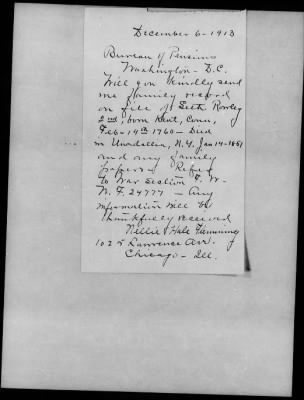 December 6-1913
Bureau of Pensions
Washington - D.C.
Will you kindly send
me family record
on file of Seth Rowley
2nd, born Kent, Conn,
Feb-19th 1760 - Died
in Unadilla, N.Y. Jan 14-1851
and any family
papers. Refer
to War Section
24777 - Any
information will be
thankfully received
Nellie Hale Flemming
1025 Lawrence Ave.
Chicago - Ill.